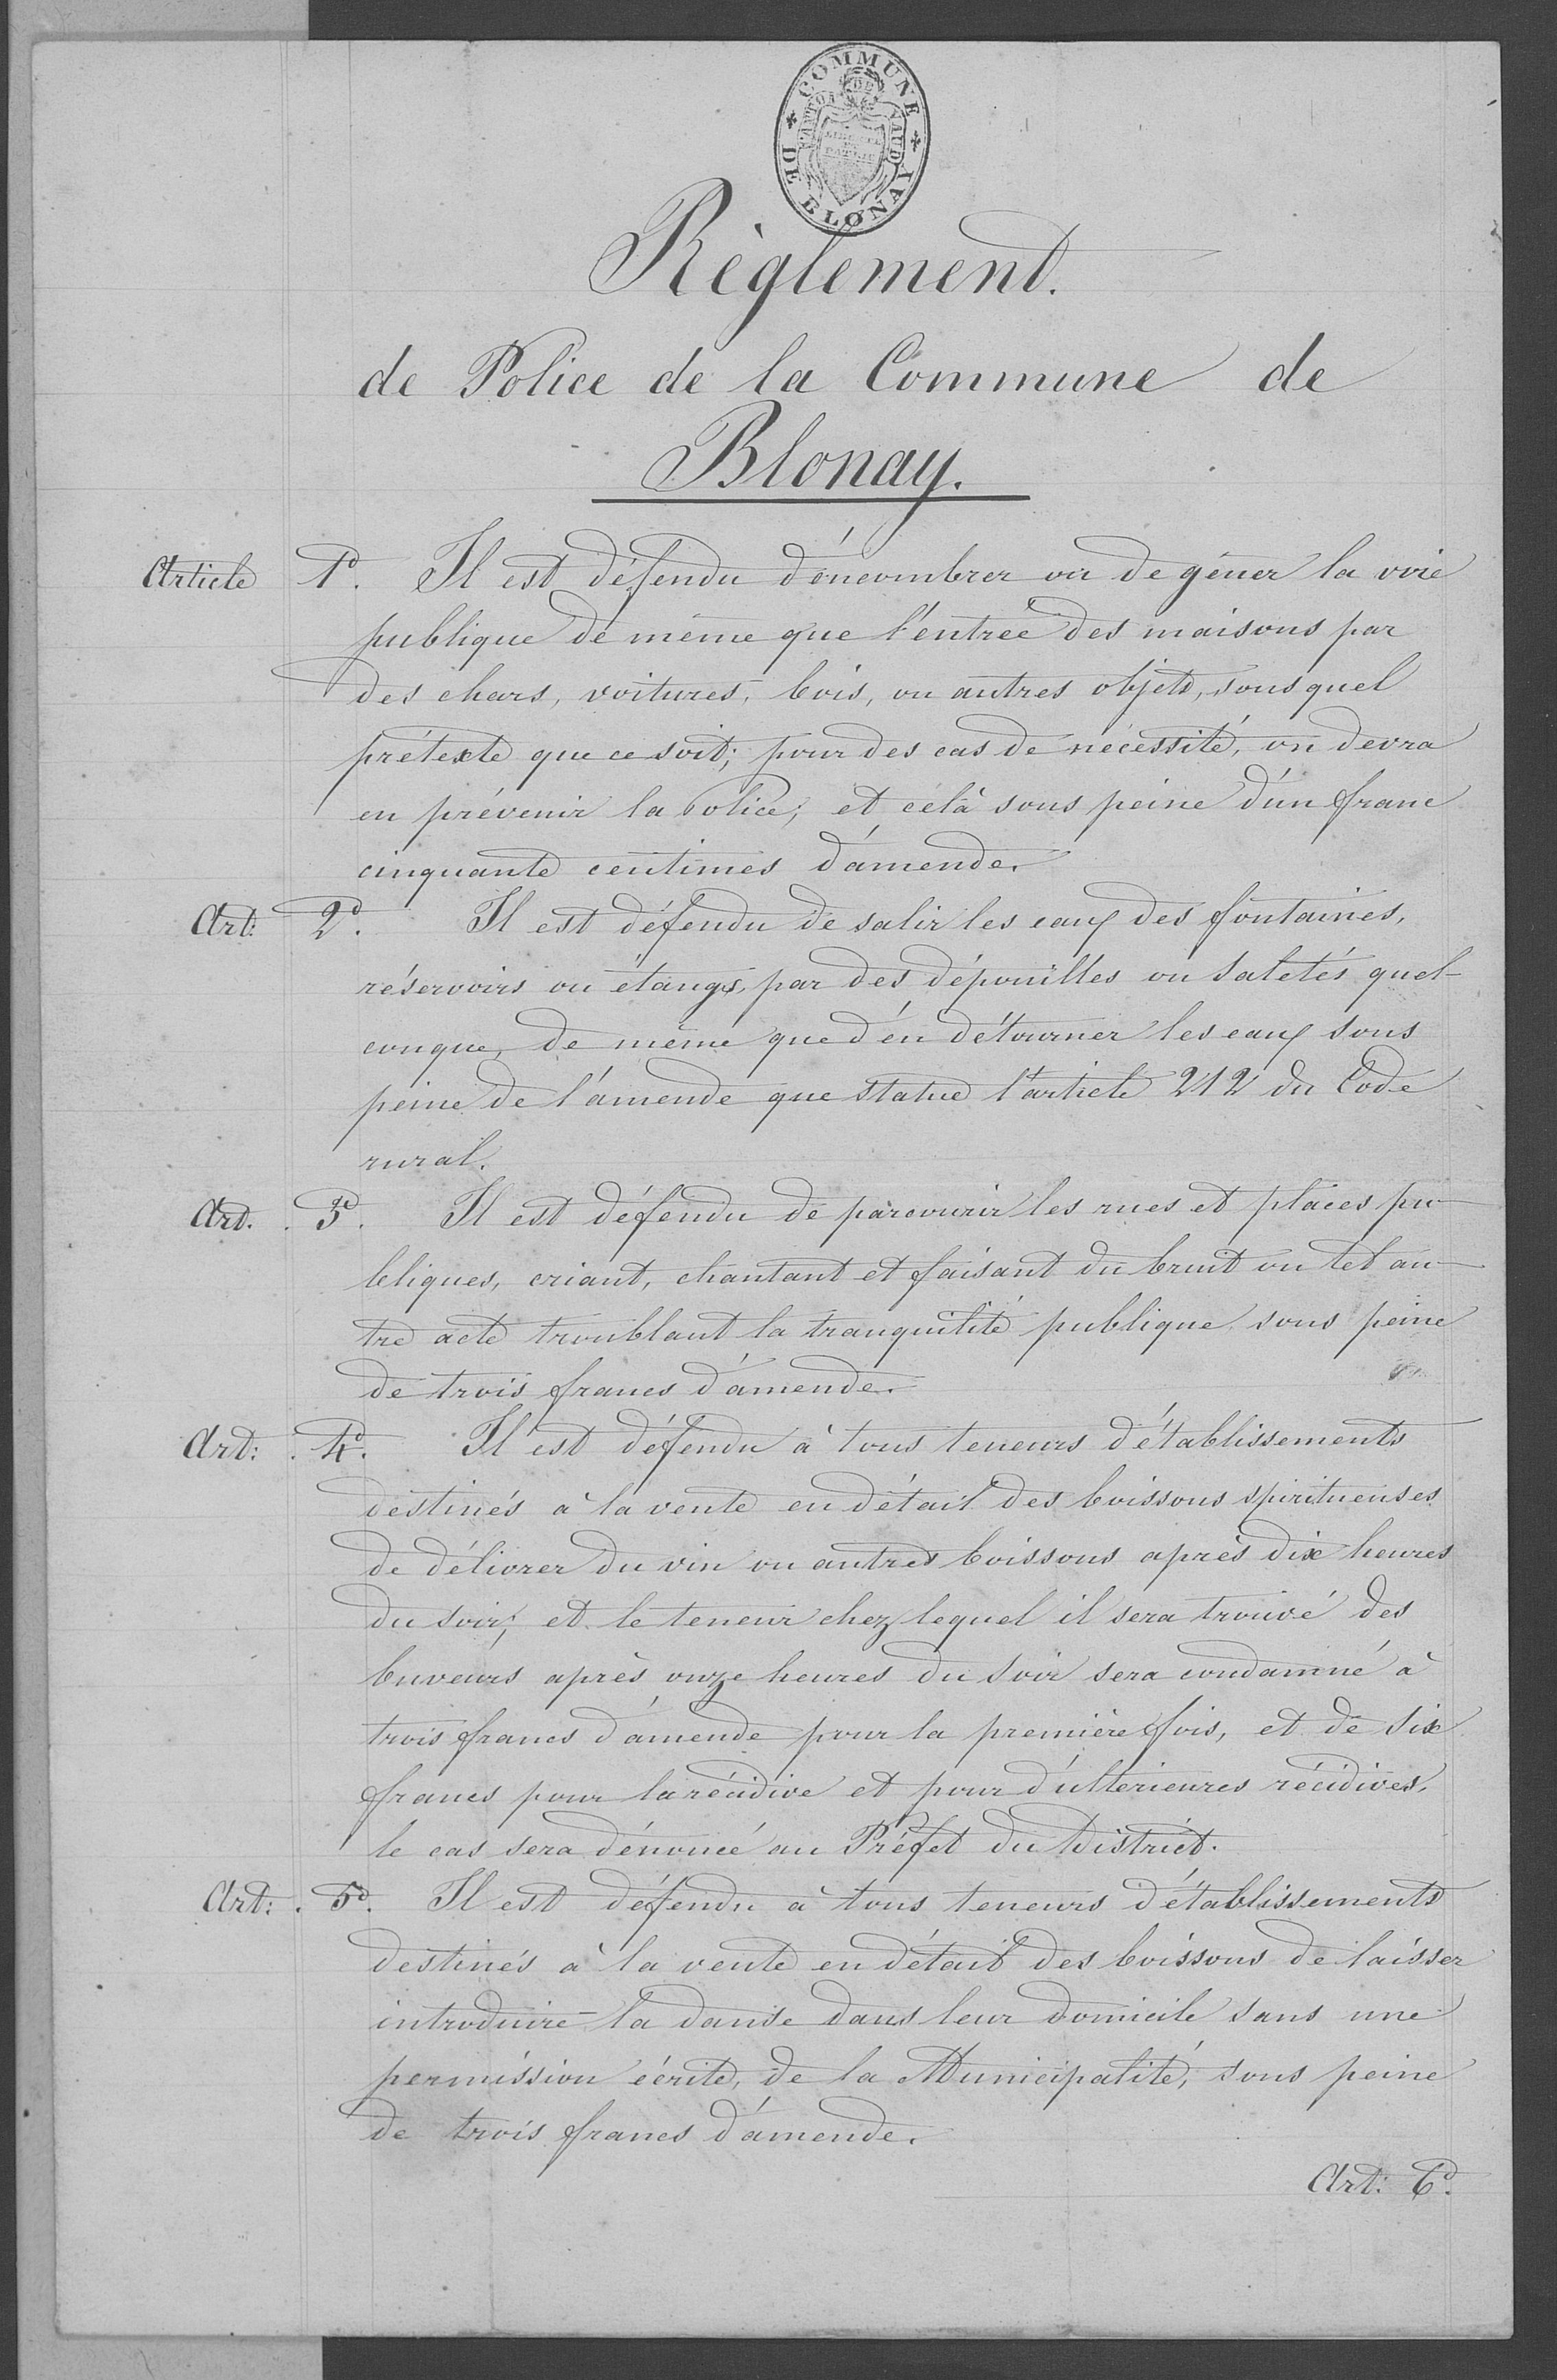 COMMUNE DE BLONAY
CANTON DE VAUD
LIBERTÉ ET PATRIE
Règlement.
de Police de la Commune de
Blonay.
Article 1º. Il est défendu d'encombrer ou de gêner la voie
publique de même que l'entrée des maisons par
des chars, voitures, bois, ou autres objets, sous quel
prétexte que ce soit; pour des cas de nécessité, on devra
en prévenir la Police; et celà sous peine d'un franc
cinquante centimes d'amende.
Art: 2º. Il est défendu de salir les eaux des fontaines,
réservoirs ou étangs, par des dépouilles ou saletés quel-
conque, de même que d'en détourner les eaux sous
peine de l'amende que statue l'article 212 du Code
rural.
Art. 3º. Il est défendu de parcourir les rues et places pu-
bliques, criant, chantant et faisant du bruit ou tel au-
tre acte troublant la tranquilité publique sous peine
de trois francs d'amende.
Art: 4º. Il est défendu à tous teneurs d'établissements
destinés à la vente en détail des boissons spiritueuses
de délivrer du vin ou autres boissons après dix heures
du soir; et le teneur chez lequel il sera trouvé des
buveurs après onze heures du soir sera condamné à
trois francs d'amende pour la première fois, et de six
francs pour la récidive et pour d'ulterieures récidives,
le cas sera dénoncé au Préfet du District.
Art: 5º. Il est défendu à tous teneurs d'établissements
destinés à la vente en détail des boissons de laisser
introduire la danse dans leur domicile sans une
permission écrite, de la Municipalité, sous peine
de trois francs d'amende.
Art: 6º.